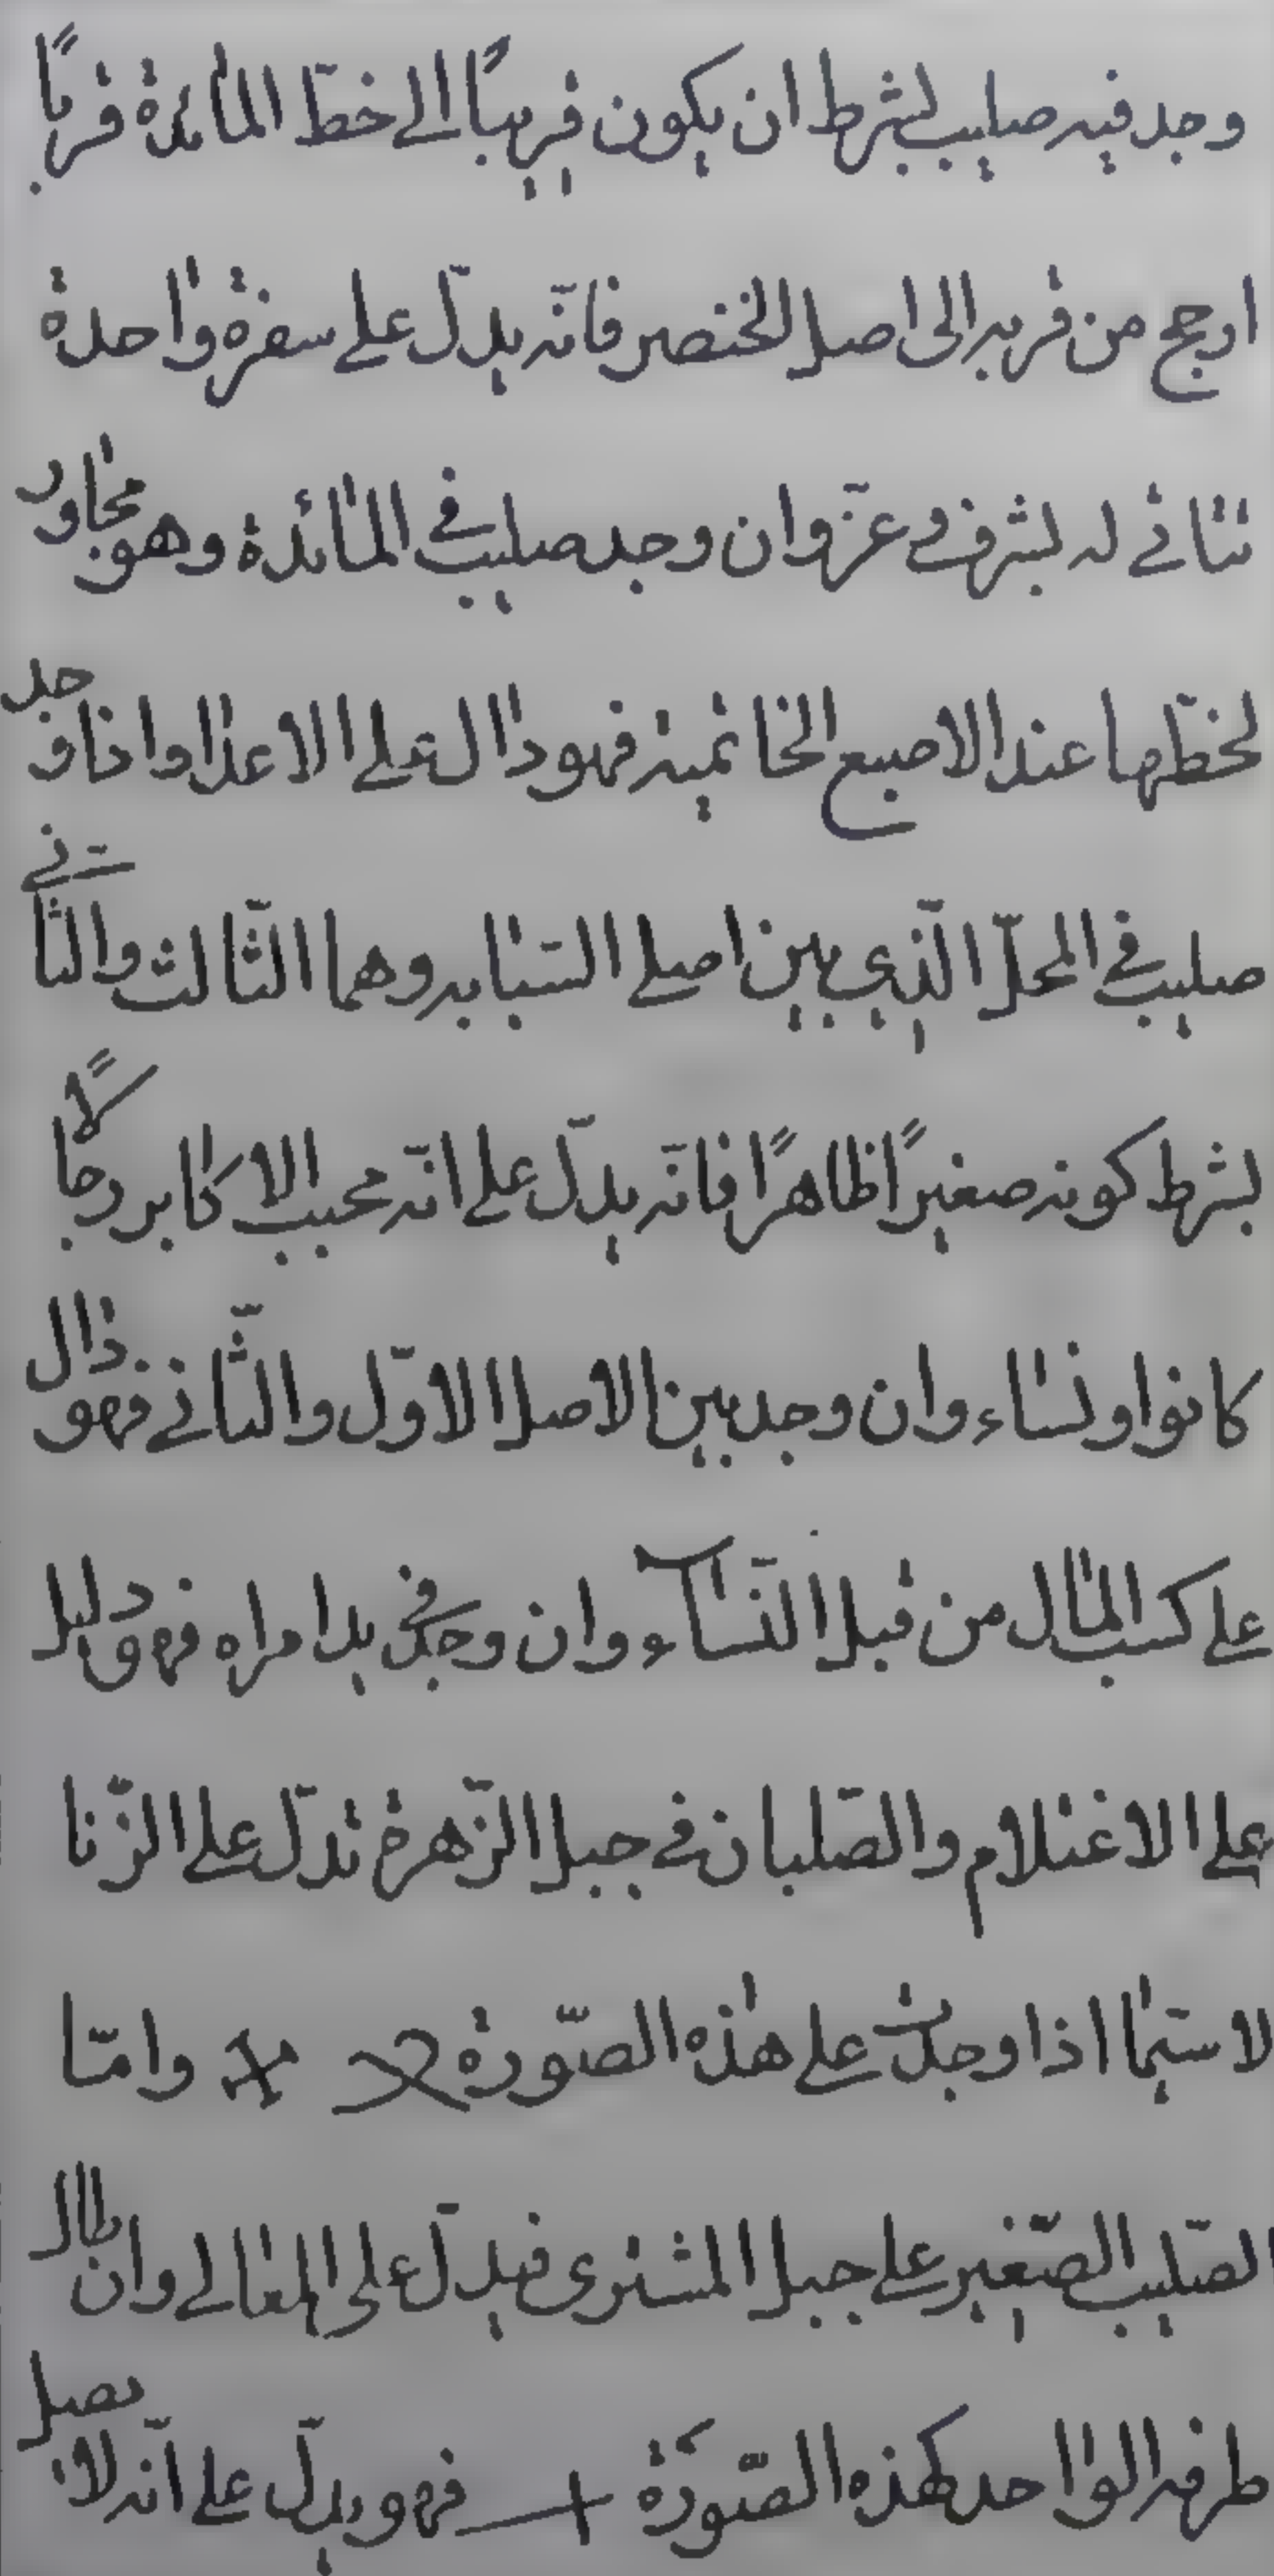 وجد فيه صليب بشرط ان يكون قريبًا الى خطّ المائدة قربًا
ارجح من قربه الى اصل الخنصر فانّه يدلّ على سفرة واحدة
تتاتي له بشرف وعزّ وان وجد صليب في المائدة وهو مجاور
لخطّها عند الاصبع الخاتمية فهو دال على الاعدا واذا وجد
صليب في المحلّ الّذي بين اصلي السّبابه وهما الثّالث والثاني
بشرط كونه صغيرًا ظاهرًا فانّه يدلّ على انّه محبب الاكابر رجالًا
كانوا ونساء وان وجد بين الاصل الاوّل والثّاني فهو دال
على كسب المال من قبل النّساء وان وجد في يد امراه فهو دليل
على الاغتلام والصّلبان في جبل الزّهرة تدلّ على الزّنا
لا سيّما اذا وجدت على هذه الصّورة وامّا
الصّليب الصّغير على جبل المشترى فيدلّ على المعالي وان طال
طرفه الواحد كهذه الصّورة فهو يدلّ على انّه لا يصل